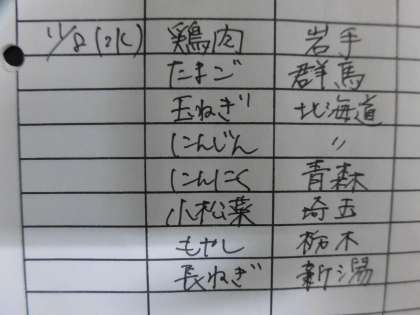 11/8(水) 鶏肉 岩手
たまご 群馬
玉ねぎ 北海道
にんじん 〃
にんにく 青森
小松菜 埼玉
もやし 栃木
長ねぎ 新潟